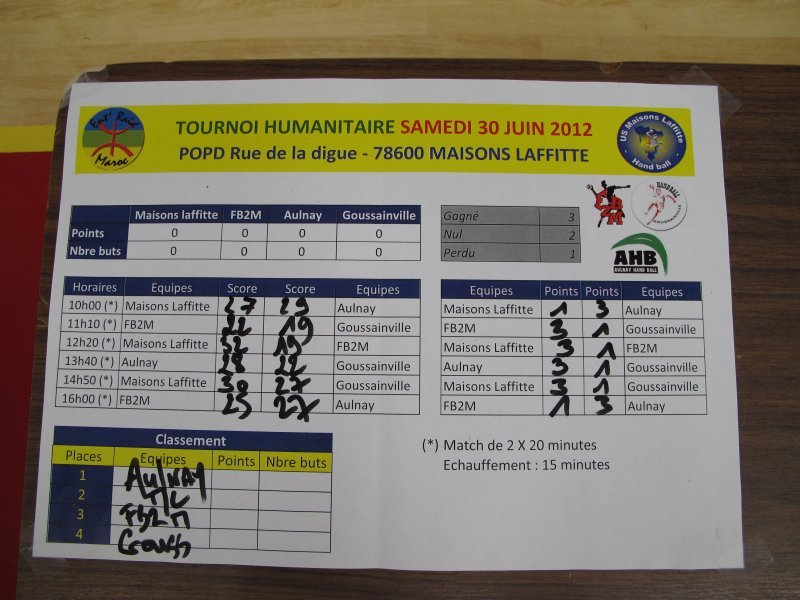 Ent' Raid Maroc
TOURNOI HUMANITAIRE SAMEDI 30 JUIN 2012
POPD Rue de la digue - 78600 MAISONS LAFFITTE
US Maisons Laffitte Hand ball
Maisons laffitte FB2M Aulnay Goussainville
Points 0 0 0 0
Nbre buts 0 0 0 0
Gagné 3
Nul 2
Perdu 1
HANDBALL
AHB
AULNAY HAND BALL
Horaires Equipes Score Score Equipes
10h00 (*) Maisons Laffitte 27 29 Aulnay
11h10 (*) FB2M 22 19 Goussainville
12h20 (*) Maisons Laffitte 32 19 FB2M
13h40 (*) Aulnay 28 22 Goussainville
14h50 (*) Maisons Laffitte 30 27 Goussainville
16h00 (*) FB2M 25 27 Aulnay
Equipes Points Points Equipes
Maisons Laffitte 1 3 Aulnay
FB2M 3 1 Goussainville
Maisons Laffitte 3 1 FB2M
Aulnay 3 1 Goussainville
Maisons Laffitte 3 1 Goussainville
FB2M 1 3 Aulnay
Classement
Places Equipes Points Nbre buts
1 AULNAY
2 M/L
3 FB2M
4 Gouss
(*) Match de 2 X 20 minutes
Echauffement : 15 minutes